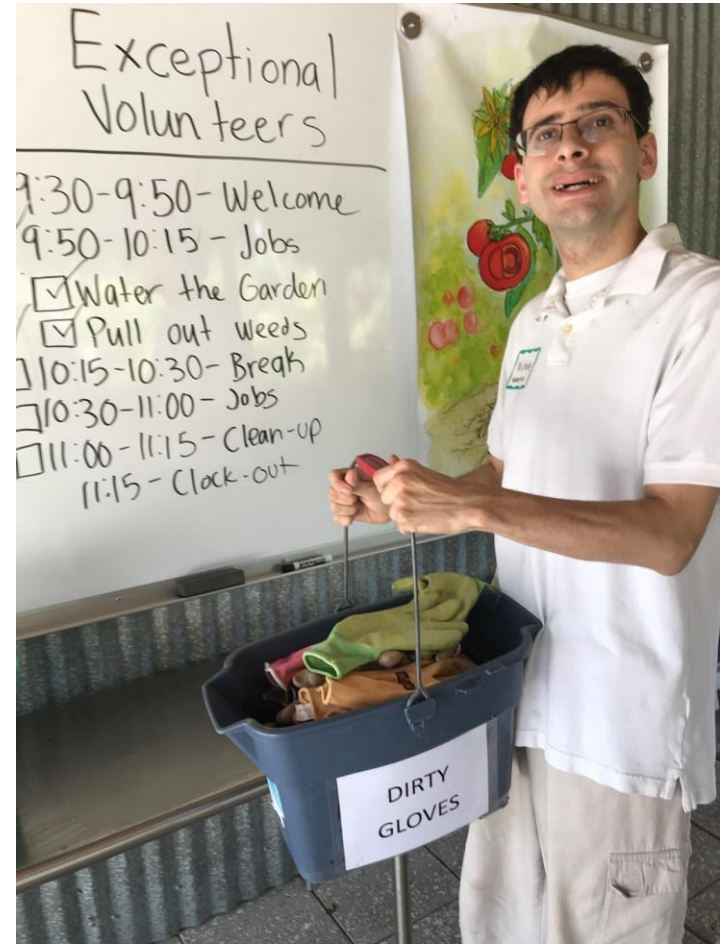 Exceptional
Volunteers
9:30-9:50- Welcome
9:50-10:15- Jobs
Water the Garden
Pull out weeds
10:15-10:30- Break
10:30-11:00- Jobs
11:00-11:15- Clean-up
11:15- Clock-out
DIRTY
GLOVES